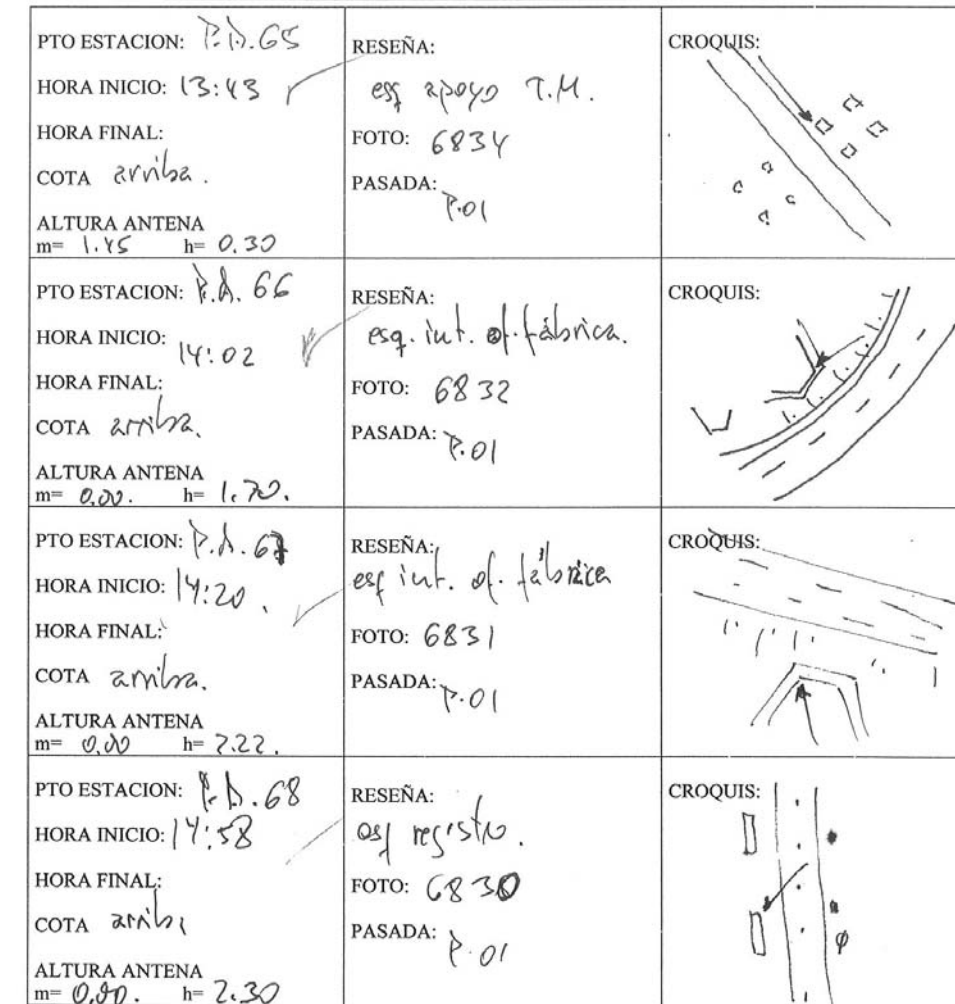 PTO ESTACION: P.A. 65
HORA INICIO: 13:43
HORA FINAL:
COTA arriba.
ALTURA ANTENA
m= 1.45 h= 0.30
RESEÑA:
esq apoyo T.M.
FOTO: 6834
PASADA: P.01
CROQUIS:
PTO ESTACION: P.A. 66
HORA INICIO: 14:02
HORA FINAL:
COTA arriba.
ALTURA ANTENA
m= 0.00. h= 1.70.
RESEÑA:
esq. int. of. fábrica.
FOTO: 6832
PASADA: P.01
CROQUIS:
PTO ESTACION: P.A. 67
HORA INICIO: 14:20
HORA FINAL:
COTA arriba.
ALTURA ANTENA
m= 0.00 h= 2.22.
RESEÑA:
esq int. of. fábrica
FOTO: 6831
PASADA: P.01
CROQUIS:
PTO ESTACION: P.A. 68
HORA INICIO: 14:58
HORA FINAL:
COTA arriba
ALTURA ANTENA
m= 0.00. h= 2.30
RESEÑA:
esq registro.
FOTO: 6830
PASADA: P.01
CROQUIS: